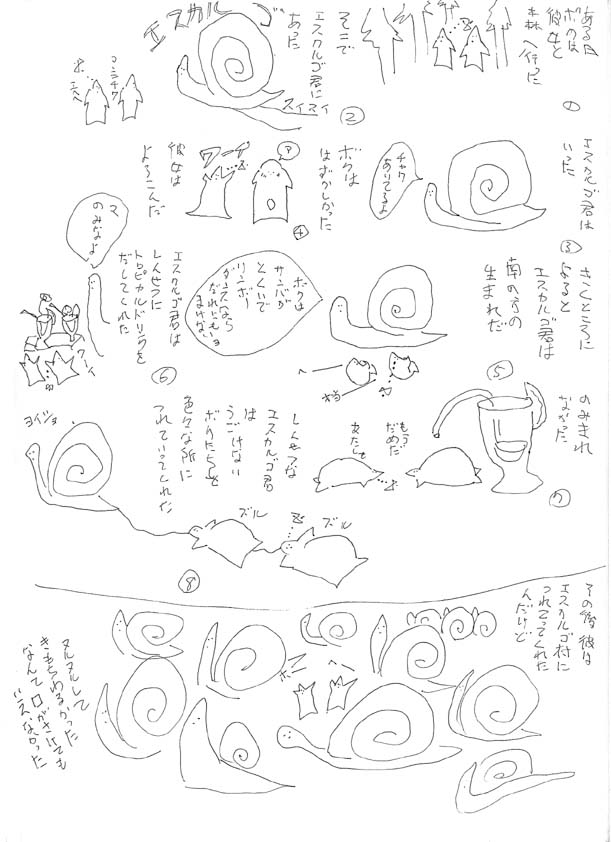 エスカルゴ
ある日
ボクは
彼女と
森へ行った
①
そこで
エスカルゴ君に
あった
スイスイ
②
コンニチワ
エスカルゴ君は
いった
チャク
あいてるよ
③
ボクは
はずかしかった
ア
④
ワーイ
彼女は
よろこんだ
きくところに
よると
エスカルゴ君は
南の方の
生まれだ
ボクは
サンバが
とくいで
リンボー
ダンスなら
だれにも
まけないヨ
⑤
へー
エスカルゴ君は
しんせつに
トロピカルドリンクを
だしてくれた
マ
のみなよ
ワーイ
⑥
のみきれ
なかった
もう
だめだ
あたしも
⑦
しんせつな
エスカルゴ君
は
うごけない
ボクたちを
色々な所に
つれていってくれた
ヨイショ
ズル
ズル
⑧
その後彼は
エスカルゴ村に
つれてってくれた
んだけど
へー
ヌルヌルして
きもちわるかった
なんて口がさけても
いえなかった